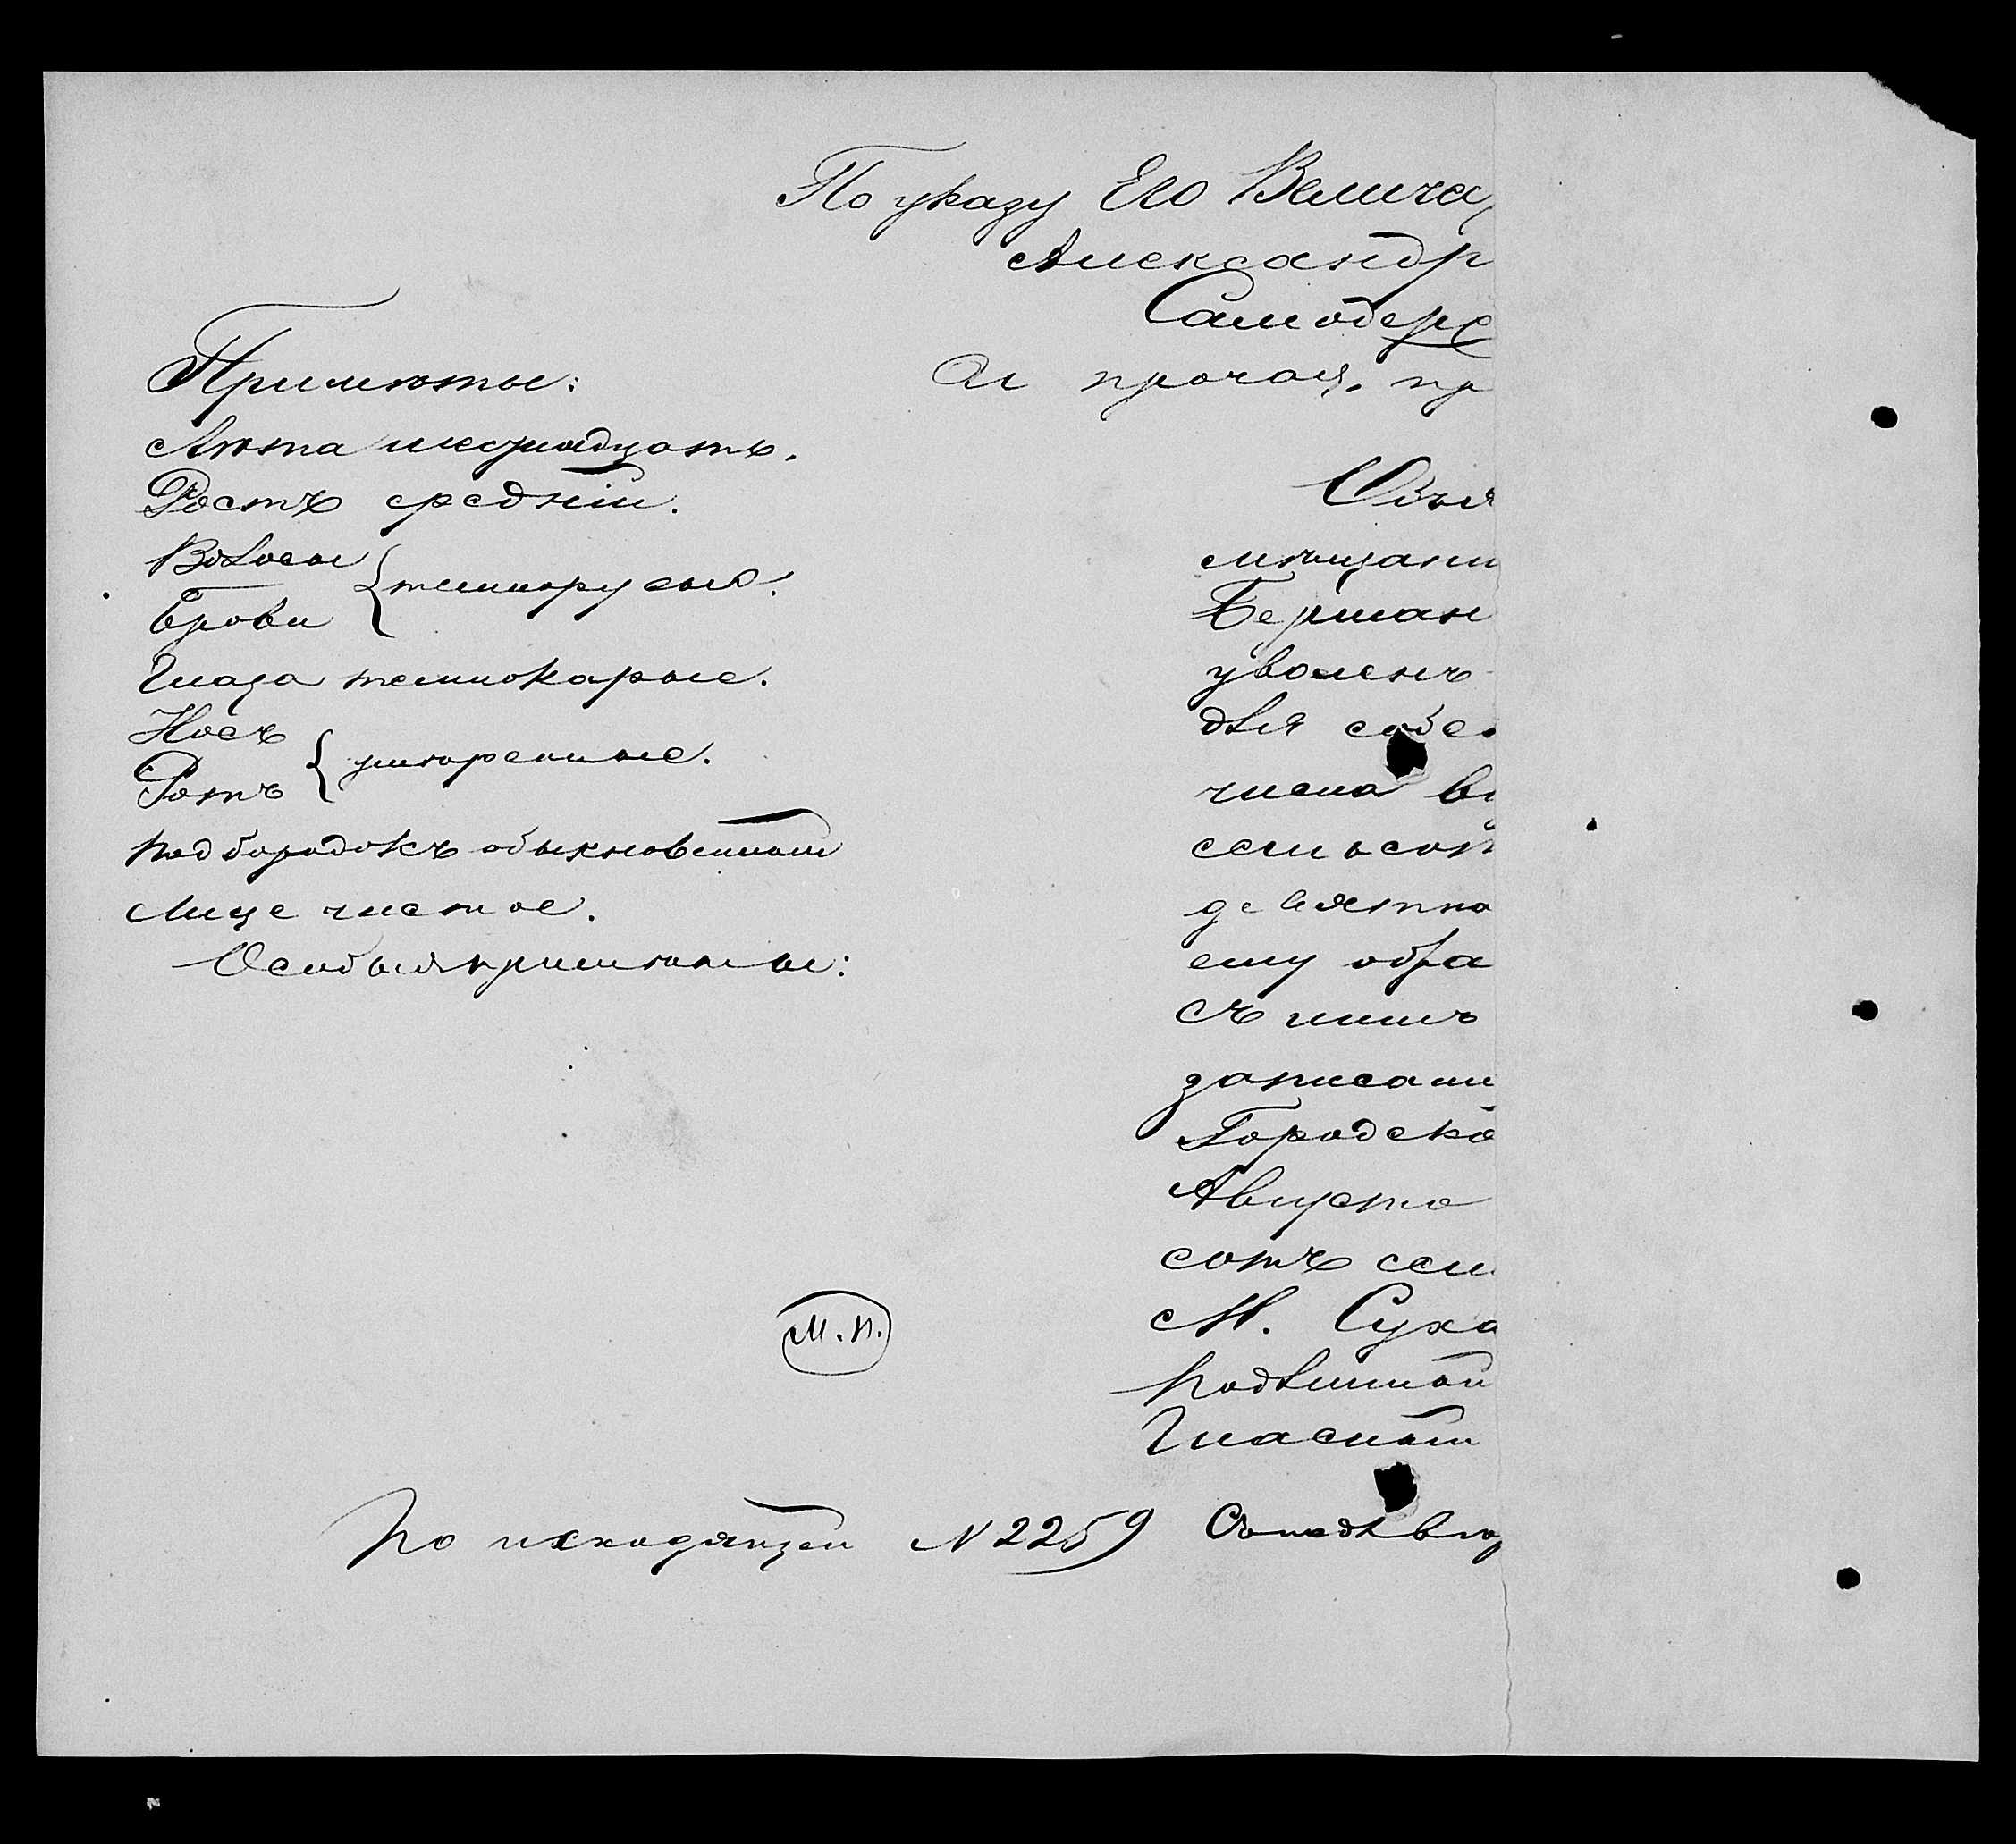 По указу Его Величес
Александр
Самодерж
и прочая, пр
Примѣты:
Лѣта шестнадцать.
Ростъ средній.
Волосы
Брови
{ темнорусые.
Глаза темнокарые.
Носъ
Ротъ
{ умѣренные.
Подбородокъ обыкновенный
Лице чистое.
Особыя примѣты:
Объя
мѣщани
Берман
уволенъ
для собс
числа
семьсот
девятна
ему обра
съ нимъ
записаны
Городско
Августа
сотъ сем
М. Суха
Подлинный
Гласный
М.П.
По исходящей N 2259